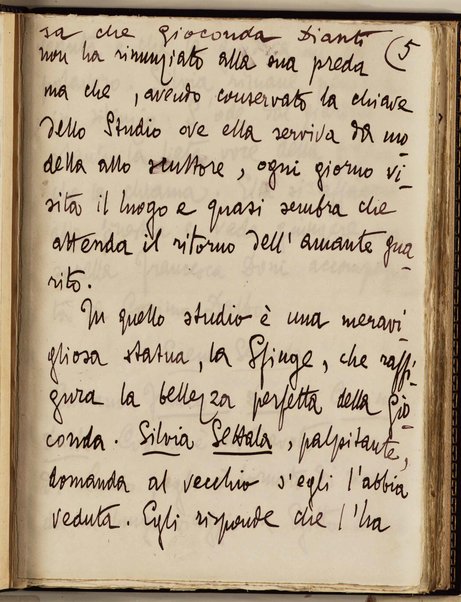 sa che gioconda Dianti
(5
non ha rinunziato alla sua preda
ma che, avendo conservato la chiave
dello Studio ove ella serviva da mo-
della allo scultore, ogni giorno vi-
sita il luogo e quasi sembra che
attenda il ritorno dell'amante gua-
rito.
In quello studio è una meravi-
gliosa statua, la Sfinge, che raffi-
gura la bellezza perfetta della Gio-
conda. Silvia Settala, palpitante,
domanda al vecchio s'egli l'abbia
veduta. Egli risponde che l'ha